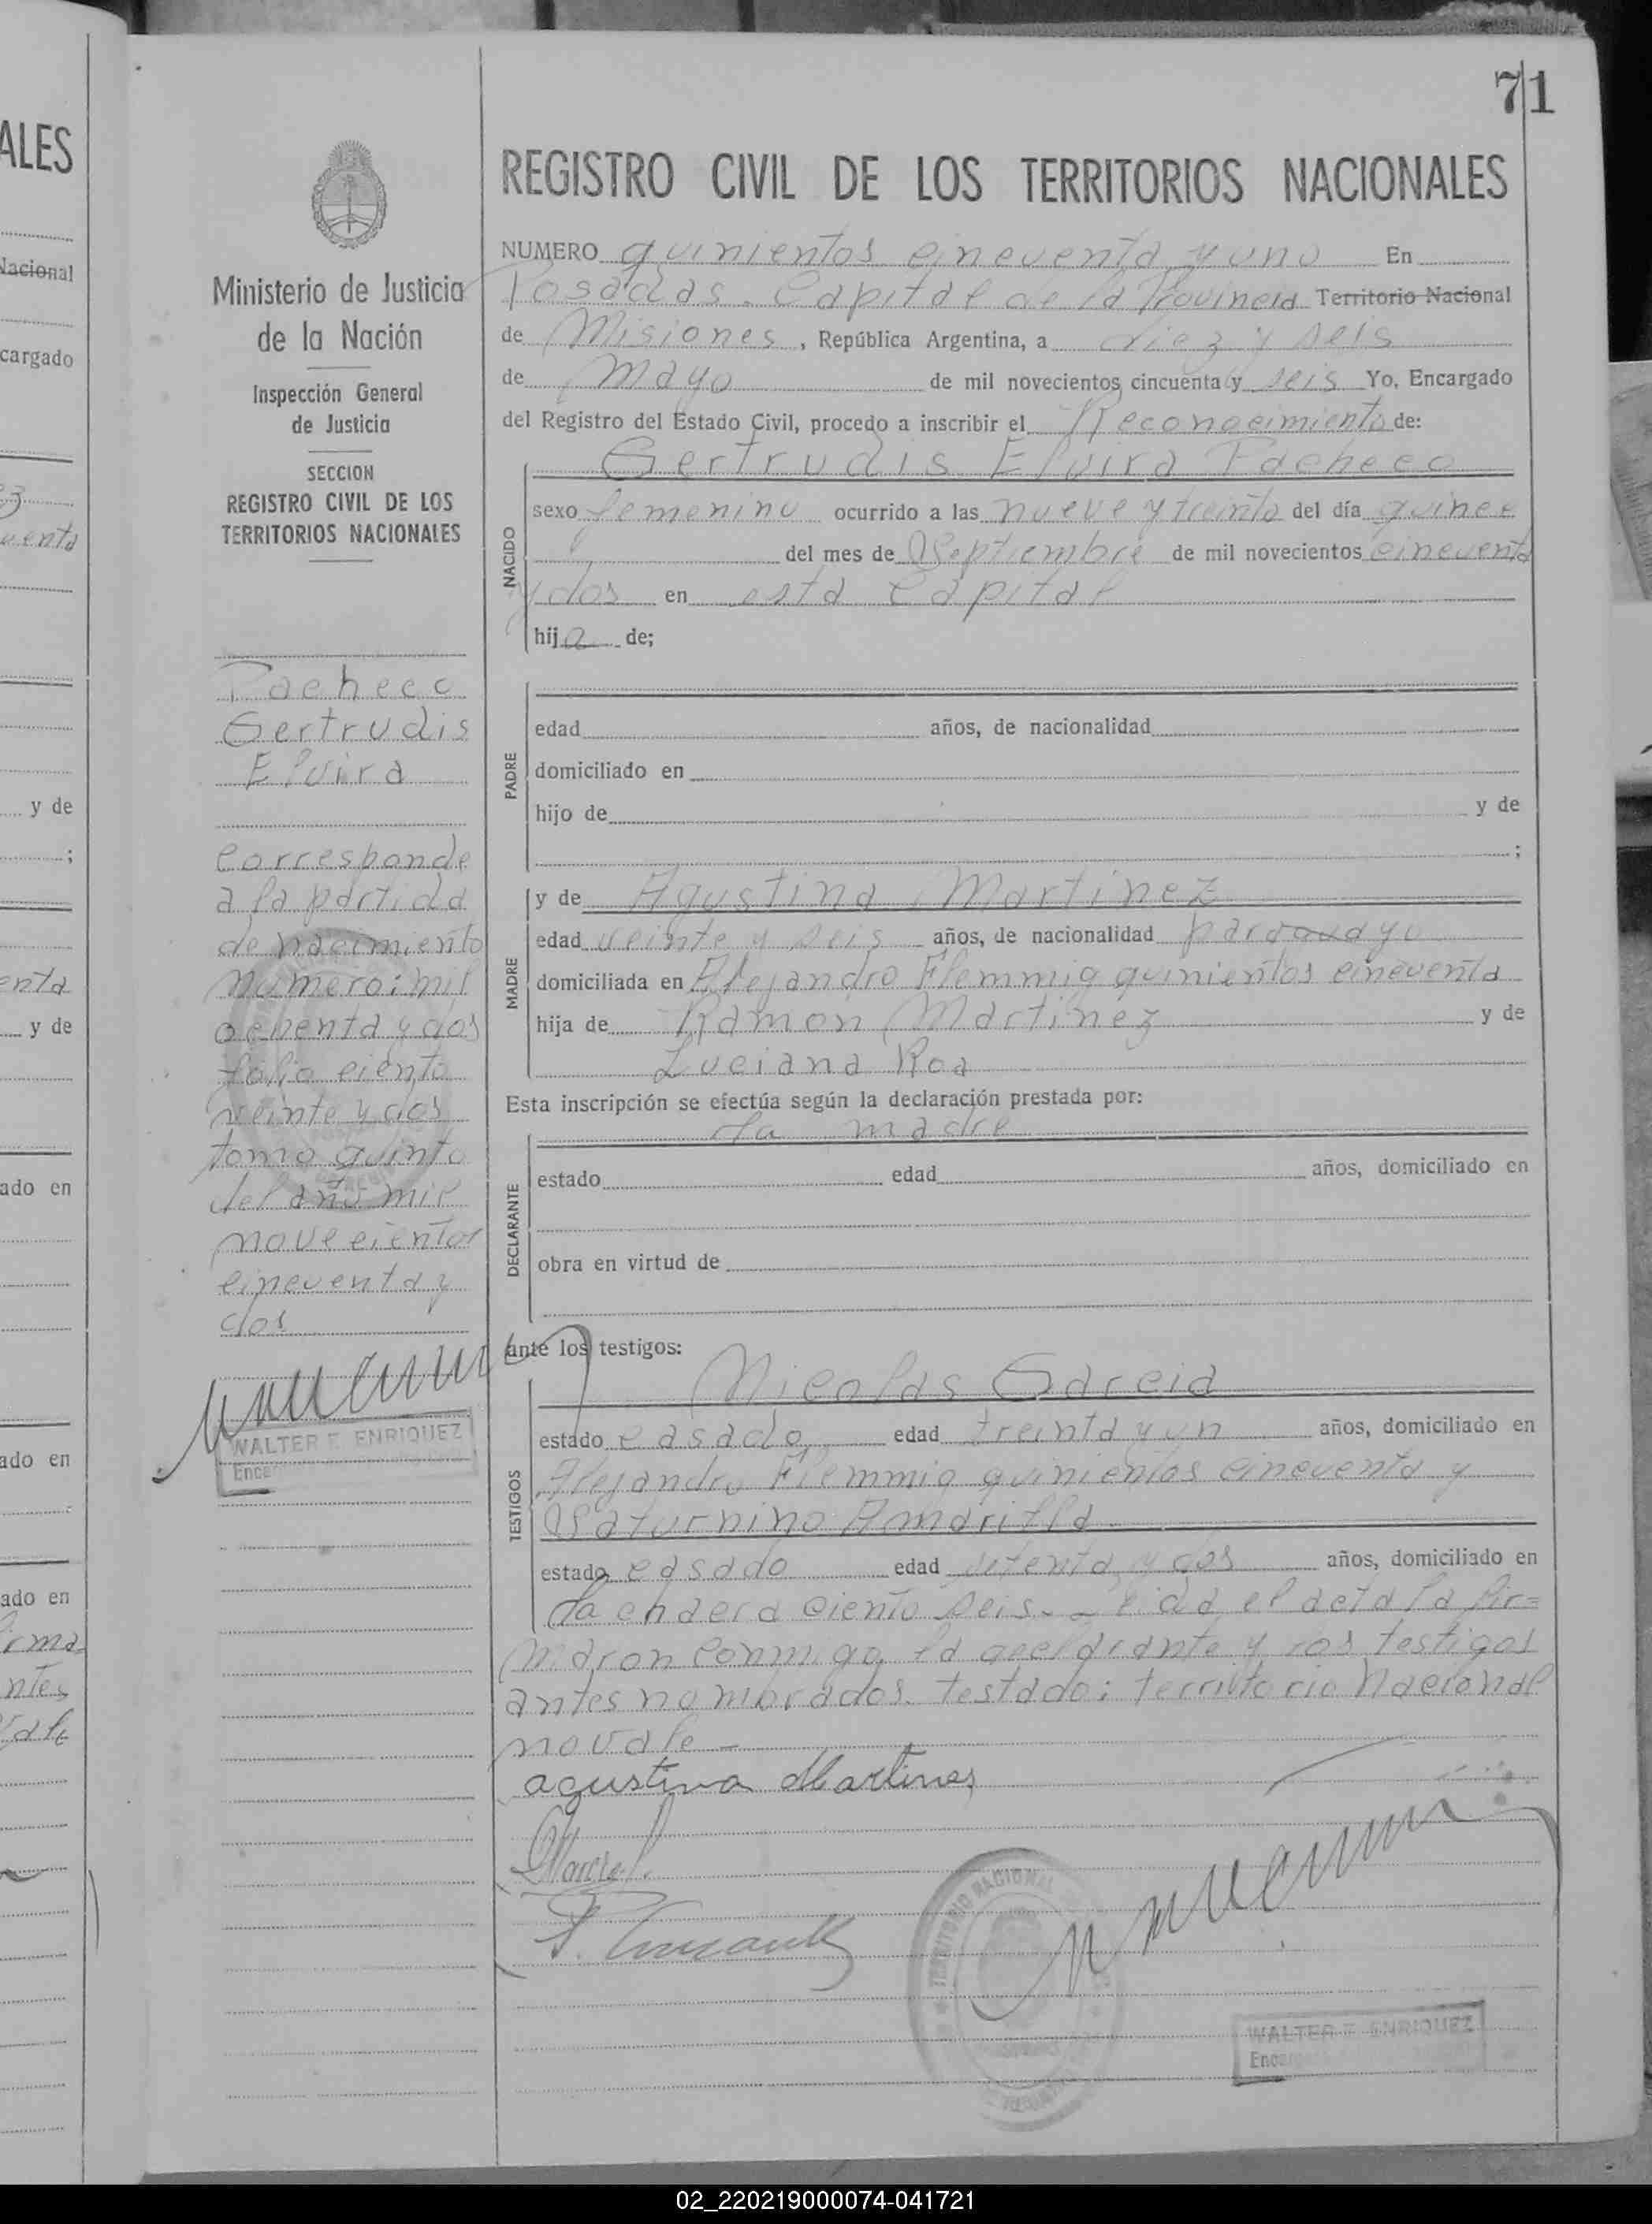 71
ALES
Nacional
cargado
y de
;
y de
ado en
ado en
ado en
Ministerio de Justicia
de la Nación
Inspección General
de Justicia
SECCION
REGISTRO CIVIL DE LOS
TERRITORIOS NACIONALES
Pacheco
Gertrudis
Elvira
corresponde
a la partida
de nacimiento
numero: mil
ochenta y dos
folio ciento
veinte y dos
tomo quinto
del año mil
novecientos
cincuenta y
dos
WALTER E. ENRIQUEZ
REGISTRO CIVIL DE LOS TERRITORIOS NACIONALES
NUMERO quinientos cincuenta y uno En
Posadas. Capital de la Provincia Territorio Nacional
de Misiones, República Argentina, a diez y seis
de Mayo de mil novecientos cincuenta y seis Yo, Encargado
del Registro del Estado Civil, procedo a inscribir el Reconocimiento de:
Gertrudis Elvira Pacheco
NACIDO
sexo femenino ocurrido a las nueve y treinta del día quince
del mes de Septiembre de mil novecientos cincuenta
y dos en esta Capital
hija de;
PADRE
edad años, de nacionalidad
domiciliado en
hijo de y de
;
MADRE
y de Agustina Martinez
edad veinte y seis años, de nacionalidad
domiciliada en Alejandro Flemmig quinientos cincuenta
hija de Ramon Martinez y de
Luciana Roa
Esta inscripción se efectúa según la declaración prestada por:
la madre
DECLARANTE
estado edad años, domiciliado en
obra en virtud de
ante los testigos:
Nicolas Garcia
TESTIGOS
estado casado edad treinta y un años, domiciliado en
Alejandro Flemmig quinientos cincuenta y
Saturnino Amarilla.
estado casado edad setenta y dos años, domiciliado en
la chacra ciento seis. el acta la fir=
maron conmigo la declarante y los testigos
antes nombrados. testado: territorio Nacional
no vale -
agustina Martinez
TERRITORIO NACIONAL
WALTER E. ENRIQUEZ
02_220219000074-041721